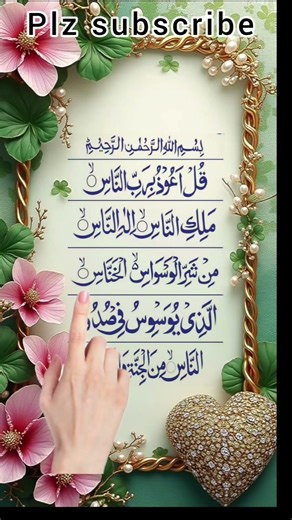 Plz subscribe
بِسْمِ اللهِ الرَّحْمٰنِ الرَّحِيْمِ
قُلْ اَعُوْذُ بِرَبِّ النَّاسِ
مَلِكِ النَّاسِ اِلٰهِ النَّاسِ
مِنْ شَرِّ الْوَسْوَاسِ الْخَنَّاسِ
الَّذِىْ يُوَسْوِسُ فِىْ صُدُ
النَّاسِ مِنَ الْجِنَّةِ